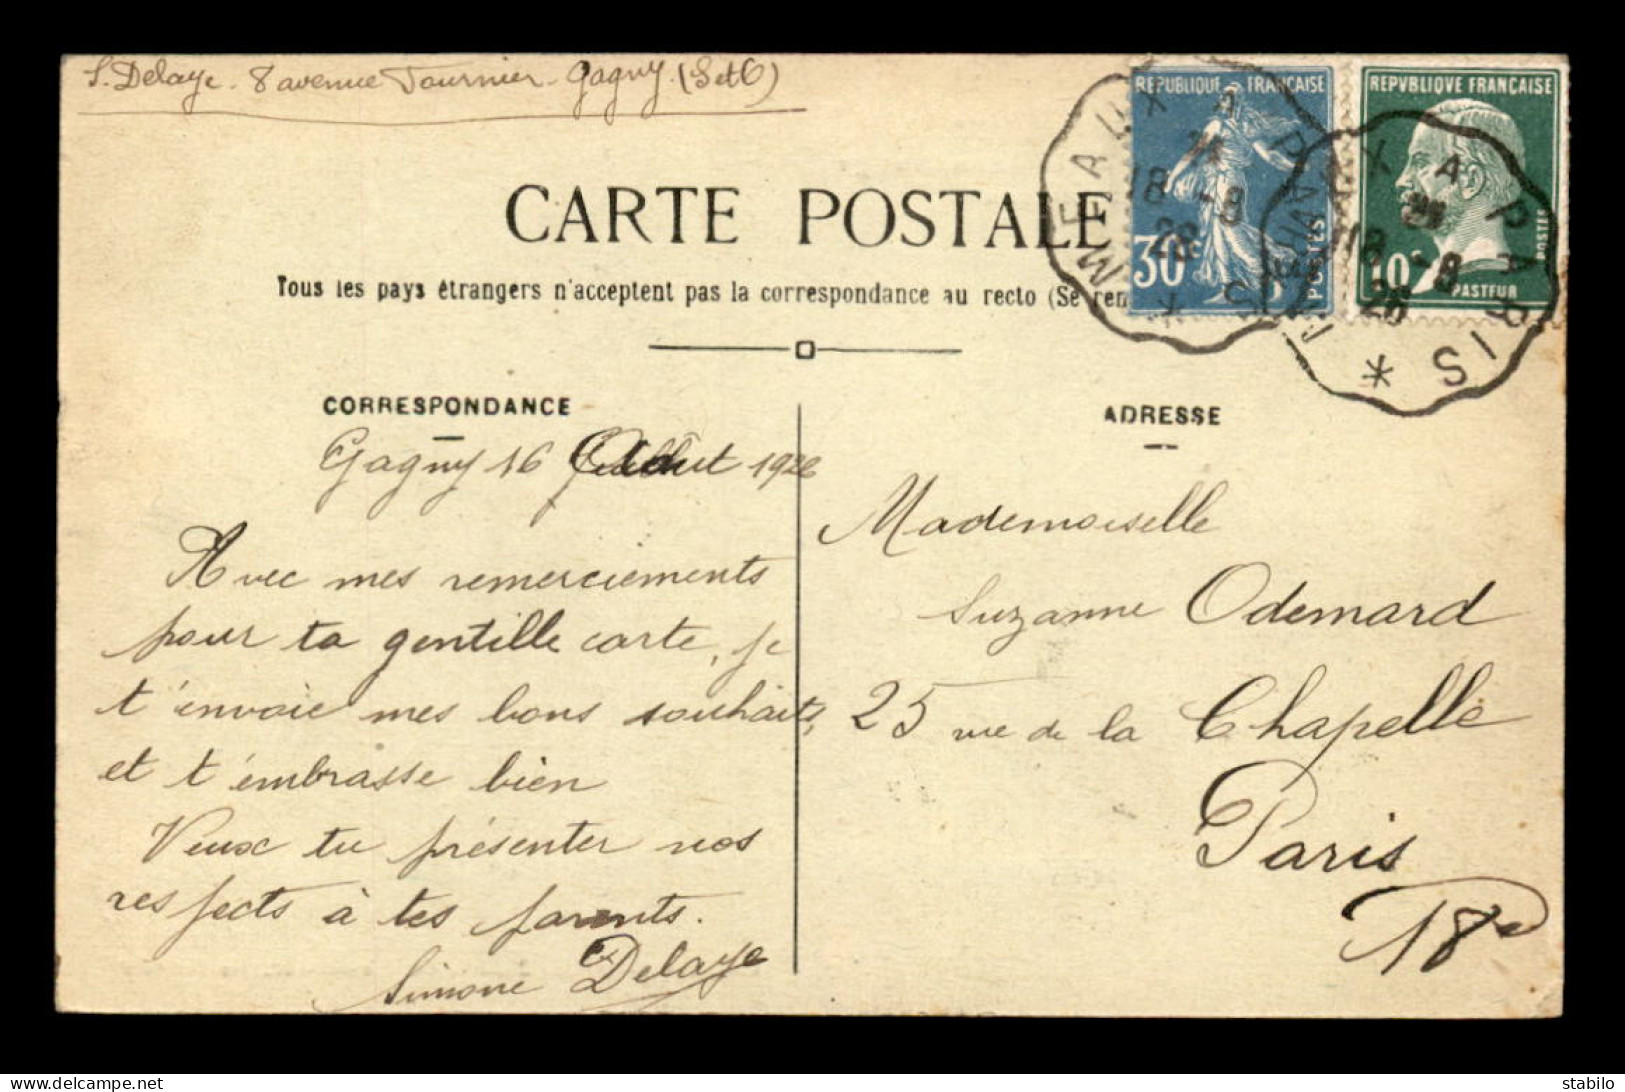 S. Delaye - 8 avenue Tournier - Gagny (S et O)
REPUBLIQUE FRANÇAISE
30c
POSTES
REPVBLIQVE FRANÇAISE
10c
POSTES
PASTEUR
MEAUX A PARIS
18 -8
26
MEAUX A PARIS
18 -8
26
CARTE POSTALE
Tous les pays étrangers n'acceptent pas la correspondance au recto (Se ren
CORRESPONDANCE
Gagny 16 Août 1926
Avec mes remerciements
pour ta gentille carte, je
t'envoie mes bons souhaits,
et t'embrasse bien
Veux tu présenter nos
respects à tes parents.
Simone Delaye
ADRESSE
Mademoiselle
Suzanne Odemard
25 rue de la Chapelle
Paris
18e
stabilo